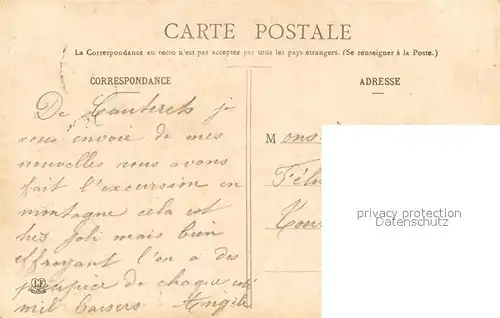 CARTE POSTALE
La Correspondance au recto n'est pas acceptée par tous les pays étrangers. (Se renseigner à la Poste.)
CORRESPONDANCE
De Cauterets je
vous envoie de mes
nouvelles nous avons
fait l'excursion en
montagne cela est
très Joli mais bien
effrayant l'on a des
précipice de chaque coté
mil baisers Angèle
ADRESSE
M ons
Féli
privacy protection
Datenschutz